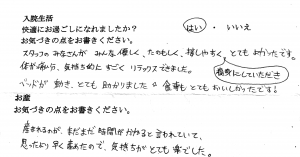 入院生活
快適にお過ごしになれましたか? はい ・ いいえ
お気づきの点をお書きください。
スタッフのみなさんが みんな優しく、たのもしく、接しやすく、とてもよかったです。
体が痛い分、気持ち的に すごく リラックスできました。 親身にしていただき
ベッドが 動き、とても助かりました。食事もとてもおいしかったです!
お産
お気づきの点をお書きください。
産まれるのが、まだまだ時間がかかると言われていて、
思ったより早く産めたので、気持ちがとても楽でした。